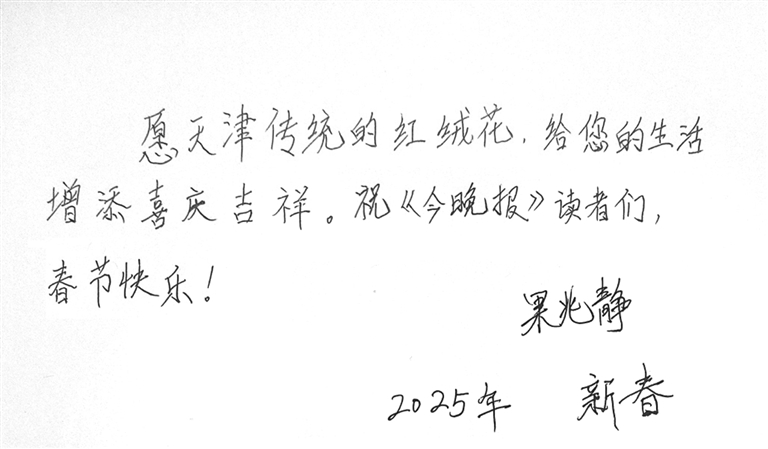 愿天津传统的红绒花，给您的生活
增添喜庆吉祥。祝《今晚报》读者们，
春节快乐！
果兆静
2025年 新春